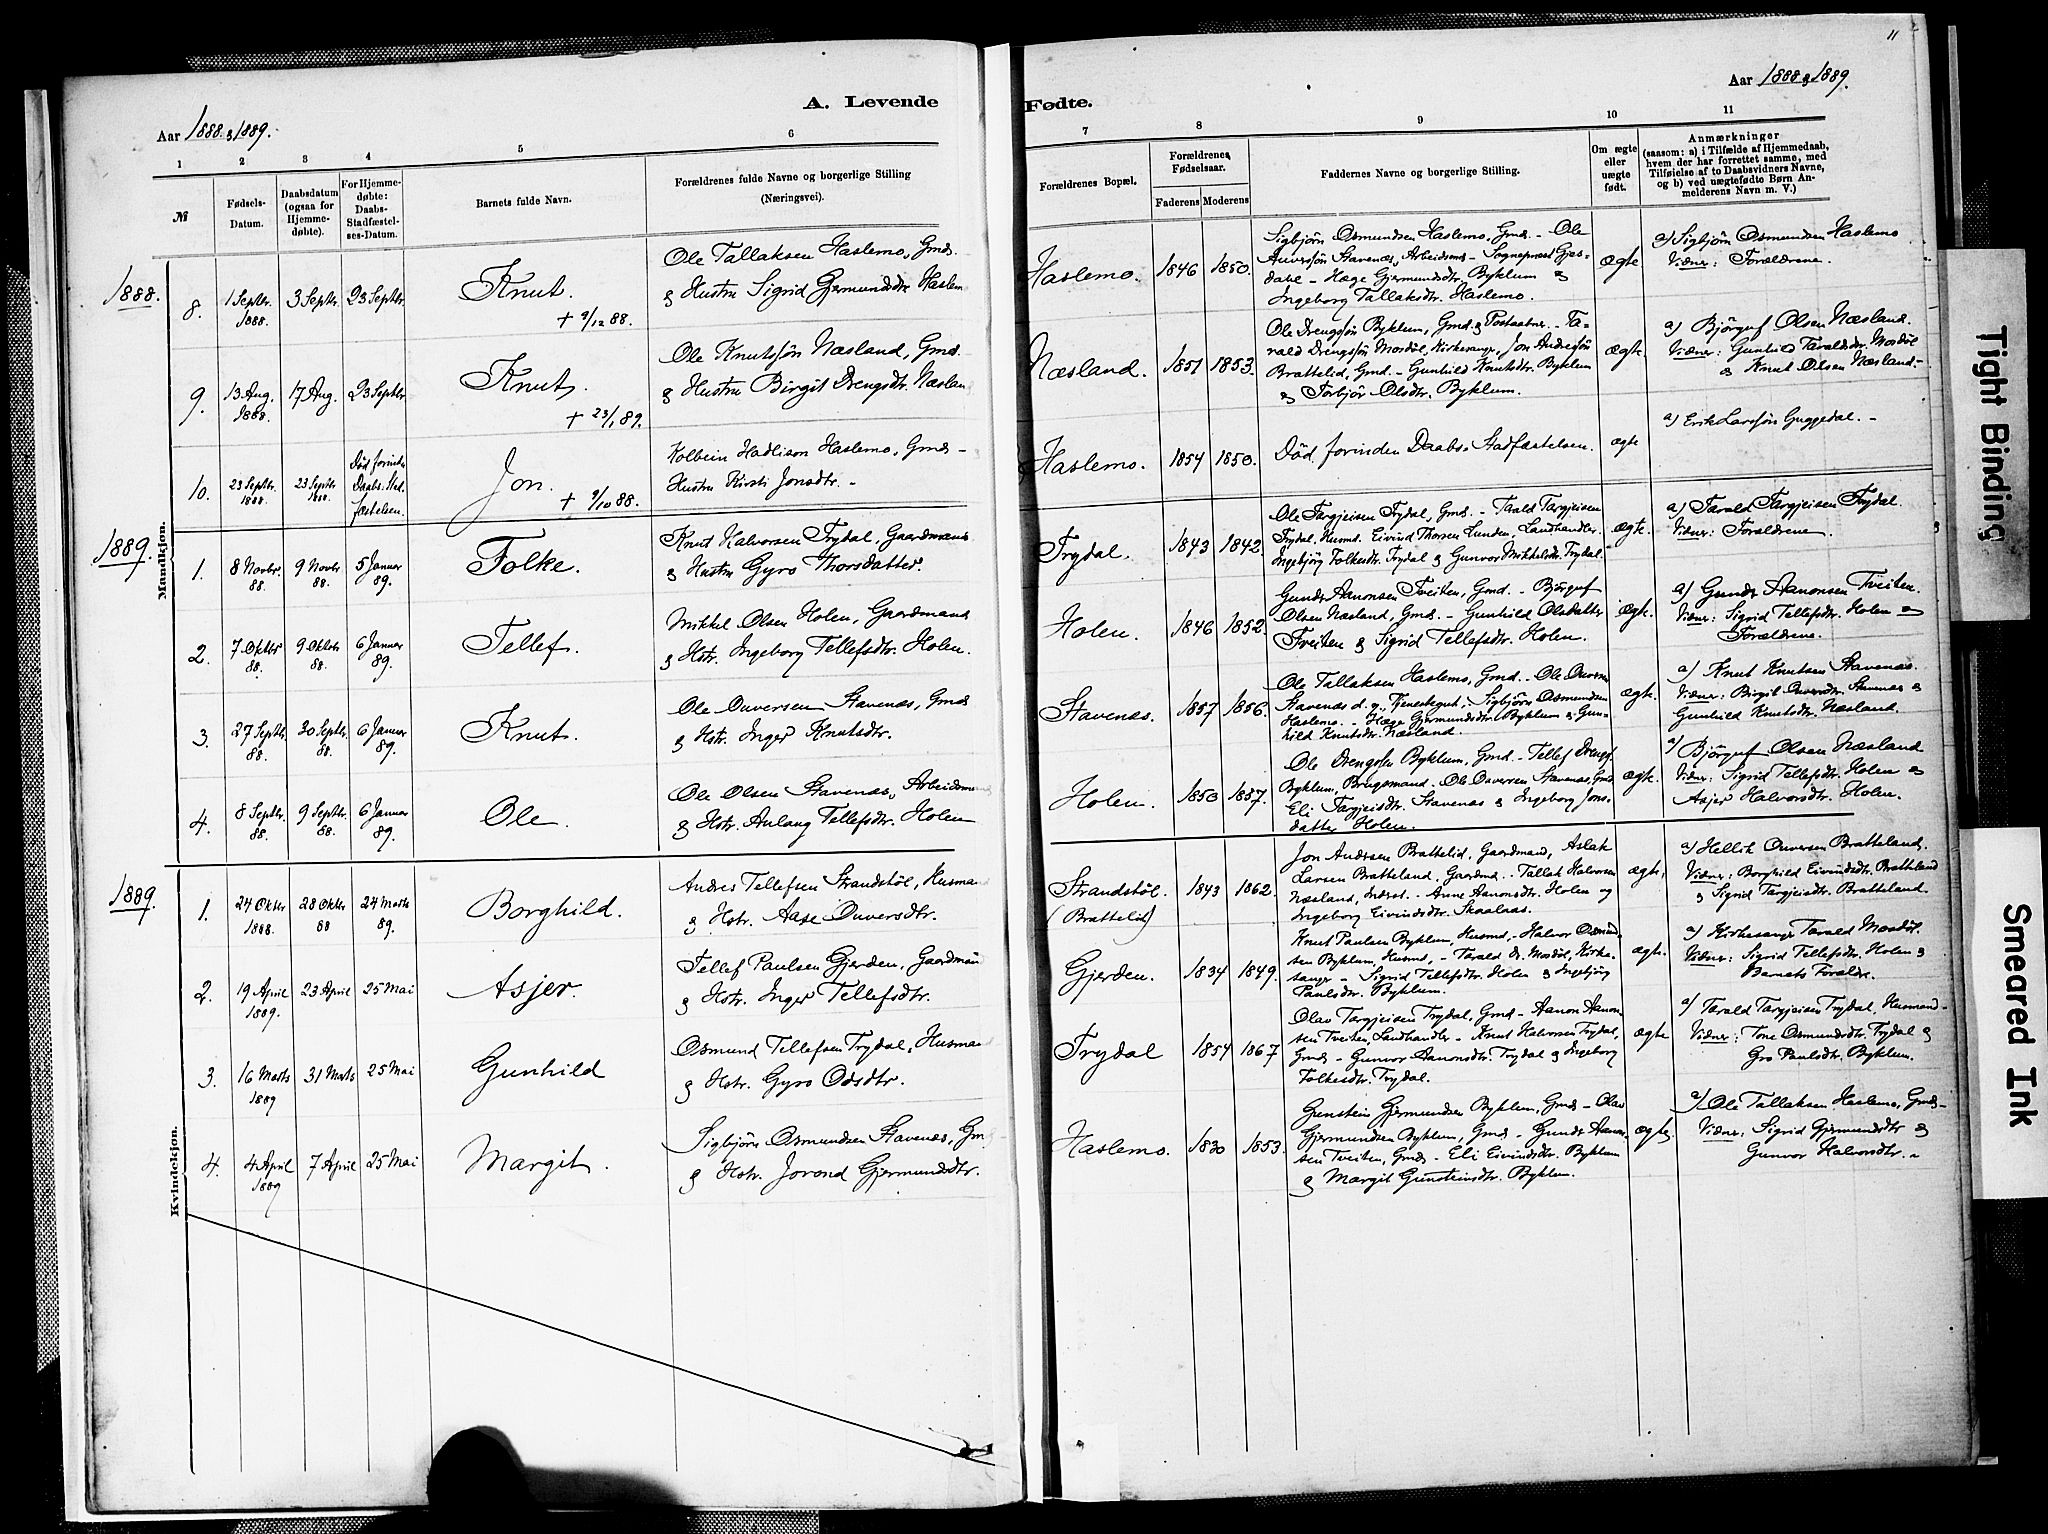 11
A. Levende
Fødte.
Aar 1888 & 1889.
Aar 1888 & 1889.
1 2 3 4 5 6
7 8 9 10 11
№
Fødsels-Datum.
Daabsdatum (ogsaa for Hjemmedøbte).
For Hjemmedøbte: Daabs-Stadfæstelses-Datum.
Barnets fulde Navn.
Forældrenes fulde Navne og borgerlige Stilling
(Næringsvei).
Forældrenes Bopæl.
Forældrenes Fødselsaar.
Faderens Moderens
Faddernes Navne og borgerlige Stilling.
Om ægte eller uægte født.
Anmærkninger
(saasom: a) i Tilfælde af Hjemmedaab,
hvem der har forrettet samme, med
Tilføielse af to Daabsvidners Navne,
og b) ved uægtefødte Børn Anmelderens Navn m. V.)
Mandkjøn.
1888.
8. 1 Septbr. 1888. 3 Septbr. 23 Septbr.
Knut.
+ 9/12 88.
Ole Tallaksen Haslemo, Gmd.
& Hustru Sigrid Gjermundsdtr Haslem
Haslemo. 1846 1850.
Sigbjörn Osmundsen Haslemo, Gmd. - Ole
Stavenæs, Arbeidsmd - Sogneprest Gjes-
dahl - Hæge Gjermundsdtr Byklum &
Ingeborg Tallaksdtr. Haslemo.
Ægte
a) Sigbjörn Osmundsen Haslemo
Vidner: Forældrene.
9. 13 Aug. 1888. 17 Aug. 23 Septbr
Knut.
+ 23/1 89.
Ole Knutsön Næsland, Gmd.
& Hustru Birgit Drengsdtr. Næslan
Næsland. 1851 1853.
Ole Drengssön Byklum, Gmd. & Postaabner - Ta-
rald Drengssön Mosdöl, Kirkesanger, Jon Andersön
Brattelid, Gmd - Gunhild Knutsdtr. Byklum
& Torbjör Olsdtr. Byklum.
Ægte
a) Björguf Olsen Næsland.
Vidner: Gunhild Taraldsdtr. Mosdöl
& Knut Olsen Næsland -
10. 23 Septbr. 1888. 23 Septbr 1888. Död forinden Daabs-Stadfæstelsen.
Jon.
+ 9/10 88.
Kolbein Hadlison Haslemo, Gmd -
Hustru Kirsti Jonsdtr. -
Haslemo. 1854 1850.
Död forinden Daabs-Stadfæstelsen.
ægte
a) Erik Larssön Guggedal. -
1889.
1. 8 Novbr. 88. 9 Novbr 88. 5 Januar 89.
Folke.
Knut Halvorsen Trydal, Gaardmand
& Hustru Gyro Thorsdatter.
Trydal. 1843 1842.
Ole Targjeisen Trydal, Gmd. - Tarald Targjeisen
Trydal, Husmd. Eivind Thorsen Lunden, Landhandler.
Ingebjörg Folkesdtr. Trydal & Gunvor Mikkelsdtr. Trydal.
ægte.
a) Tarald Targjeisen Trydal.
Vidner: Forældrene.
2. 7 Oktbr 88. 9 Oktobr 88. 6 Januar 89.
Tellef.
Mikkel Olsen Holen, Gaardmand
& Hstr. Ingeborg Tellefsdtr. Holen.
Holen. 1846 1852.
Gunder Aanonsen Tveiten, Gmd. - Björguf
Olsen Næsland, Gmd. - Gunhild Olsdatter
Tveiten & Sigrid Tellefsdtr. Holen.
ægte.
a) Gunder Aanonsen Tveiten.
Vidner: Sigrid Tellefsdtr. Holen &
Forældrene.
3. 27 Septbr. 88. 30 Septbr. 88. 6 Januar 89.
Knut.
Ole Ouversen Stavenæs, Gmd
& Hstr. Inger Knutsdtr.
Stavenæs. 1857 1856.
Ole Tallaksen Haslemo, Gmd. - Ole Ouversen
Stavenæs d.y., Tjenestegut, - Sigbjörn Osmundsen
Haslemo. - Hæge Gjermundsdtr. Byklum & Gun-
hild Knutsdtr. Næsland.
ægte.
a) Knut Knutsen Stavenæs.
Vidner: Birgit Ouversdtr. Stavenæs &
Gunhild Knutsdtr. Næsland.
4. 8 Septbr. 88. 9 Septbr. 88. 6 Januar 89.
Ole.
Ole Olsen Stavenæs, Arbeidsman
& Hstr. Aulaug Tellefsdtr. Holen
Holen. 1850 1857.
Ole Drengsen Byklum, Gmd. - Tellef Drengs.
Byklum, Brugsmand. Ole Ouversen Stavenæs, Gmd
Eli Targjeisdtr. Stavenæs & Ingeborg Jons-
datter Holen.
ægte.
a) Björguf Olsen Næsland
Vidner: Sigrid Tellefsdtr. Holen &
Asjer Halvorsdtr. Holen.
Kvindekjøn.
1889.
1. 24 Oktbr 1888. 28 Oktbr 88 24 Marts 89.
Borghild.
Andres Tellefsen Strandstöl, Husman
& Hstr. Aase Ouversdtr.
Strandstöl. (Brattelid) 1843 1862.
Jon Andersen Brattelid, Gaardmand, Aslak
Larsen Bratteland, Gaardmd. - Tallak Halvorsen
Næsland, Inderst. - Anne Aanonsdtr. Holen og
Ingeborg Eivindsdtr. Skaalaas.
ægte,
a) Hellik Ouversen Bratteland.
Vidner: Borghild Eivindsdtr. Bratteland
& Sigrid Targjeisdtr. Bratteland.
2. 19 April 1889. 23 April 25 Mai
Asjer.
Tellef Paulsen Gjerden, Gaardman
& Hstr. Inger Tellefsdtr.
Gjerden. 1834 1849.
Knut Paulsen Byklum, Husmd, - Halvor Osmund-
sen Byklum, Husmd, - Tarald D. Mosdöl, Kirke-
sanger - Sigrid Tellefsdtr. Holen & Ingebjörg
Paulsdtr. Byklum.
ægte.
a) Kirkesanger Tarald Mosdöl.
Vidner: Sigrid Tellefsdtr. Holen &
Barnets Foraldre.
3. 16 Marts 1889 31 Marts 25 Mai
Gunhild
Osmund Tellefsen Trydal, Husman
& Hstr. Gyro Odsdtr.
Trydal 1854 1867
Olav Targjeisen Trydal, Gmd - Aanon Aanon-
sen Tveiten, Landhandler - Knut Halvorsen Trydal,
Gmd - Gunvor Aanonsdtr. Trydal & Ingeborg
Folkesdtr. Trydal.
ægte
a) Tarald Targjeisen Trydal, Husmand -
Vidner: Tone Osmundsdtr. Trydal &
Gro Paulsdtr. Byklum.
4. 4 April 1889 7 April 25 Mai
Margit.
Sigbjörn Osmundsen Stavenæs, Gm
& Hstr. Jorond Gjermundsdtr.
Haslemo. 1830 1853.
Grunstein Gjermundsen Byklum, Gmd - Olav
Gjermundsen Byklum, Gmd - Gunder Aanon-
sen Tveiten, Gmd - Eli Eivindsdtr. Byklum
& Margit Grunsteinsdtr. Byklum.
ægte.
a) Ole Tallaksen Haslemo, Gmd -
Vidner: Sigrid Gjermundsdtr &
Gunvor Halvorsdtr. -
Tight Binding
Smeared Ink